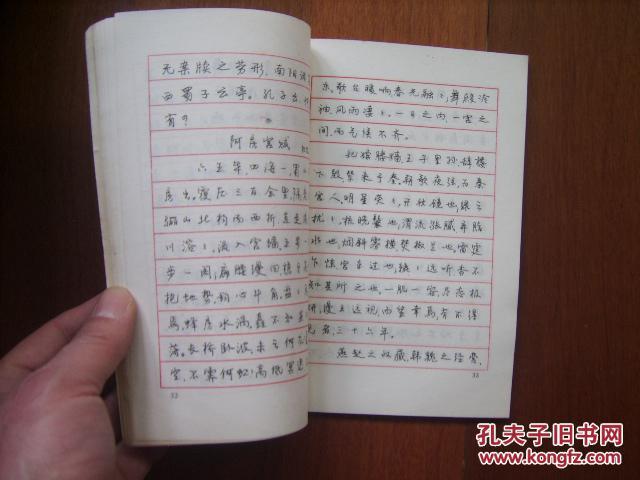 无案牍之劳形。南阳诸
西蜀子云亭。孔子云：何
有？
阿房宫赋 杜
六王毕，四海一，蜀山
房出。覆压三百余里，隔离
骊山北构而西折，直走咸
川溶〻，流入宫墙。五步一
步一阁；廊腰缦回，檐牙
抱地势，钩心斗角。盘〻
焉，蜂房水涡，矗不知其
落。长桥卧波，未云何龙？
空，不霁何虹？高低冥迷，
32
东。歌台暖响，春光融〻；舞殿冷
袖，风雨凄〻。一日之内，一宫之
间，而气候不齐。
妃嫔媵嫱，王子皇孙，辞楼
下殿，辇来于秦。朝歌夜弦，为秦
宫人。明星荧〻，开妆镜也；绿云
扰〻，梳晓鬟也；渭流涨腻，弃脂
水也；烟斜雾横，焚椒兰也。雷霆
乍惊，宫车过也；辘〻远听，杳不
知其所之也。一肌一容，尽态极
妍，缦立远视，而望幸焉，有不得
见者，三十六年。
燕赵之收藏，韩魏之经营，
33
孔夫子旧书网
www.kongfz.com